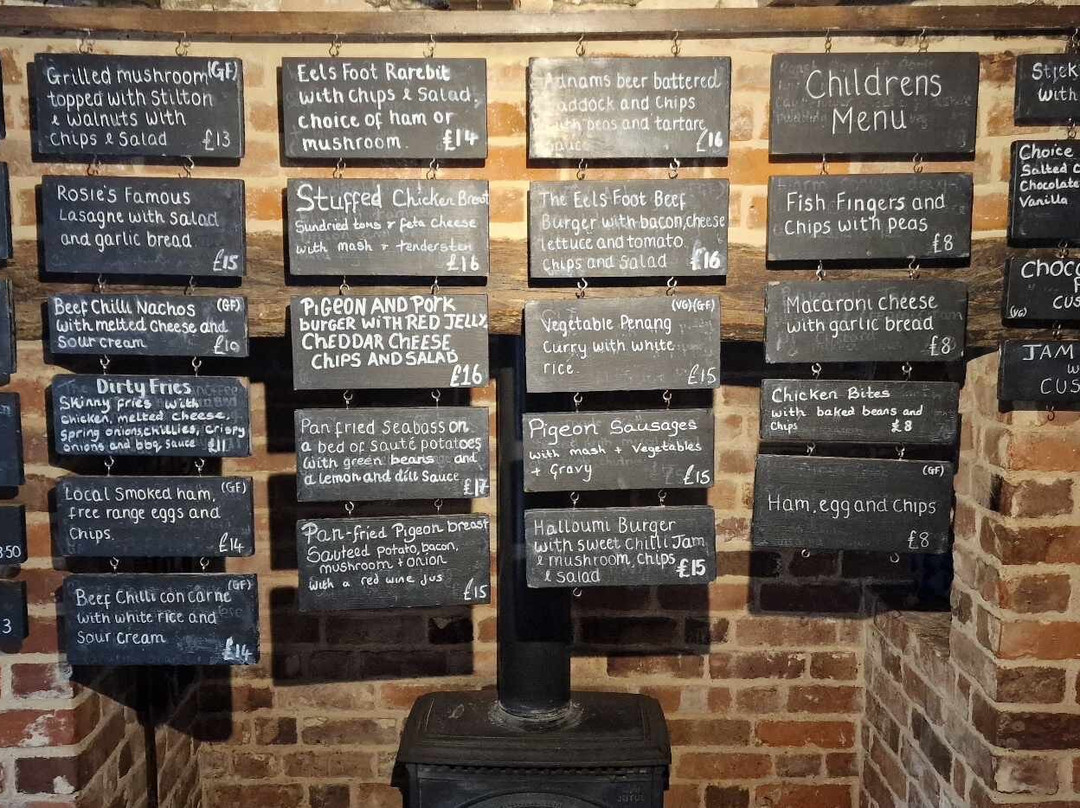 3.50
3
Grilled mushroom (GF)
topped with Stilton
& walnuts with
Chips & Salad £13
Rosie's Famous
Lasagne with salad
and garlic bread
£15
Beef Chilli Nachos (GF)
with melted cheese and
Sour cream £10
Dirty Fries
Skinny fries with
chicken, melted cheese,
spring onions, chillies, crispy
onions and bbq sauce £11
Local Smoked ham, (GF)
free range eggs and
Chips. £14
Beef Chilli con carne (GF)
with white rice and
Sour cream £14
Eels Foot Rarebit
with chips & Salad,
choice of ham or
mushroom. £14
Stuffed Chicken Breast
Sundried toms & feta cheese
with mash + tenderstem
£16
PIGEON AND PORK
burger WITH RED JELLY,
CHEDDAR CHEESE
CHIPS AND SALAD
£16
Pan fried Seabass on
a bed of sauté potatoes
with green beans and
a lemon and dill Sauce £17
Pan-fried Pigeon breast
Sauteed potato, bacon,
mushroom + onion
with a red wine jus £15
Adnams beer battered
haddock and Chips
with peas and tartare
sauce £16
The Eels Foot Beef
Burger with bacon, cheese
lettuce and tomato.
Chips and Salad £16
(VG)(GF)
Vegetable Penang
Curry with white
rice. £15
Pigeon Sausages
with mash + vegetables
+ Gravy £15
Halloumi Burger
with sweet Chilli Jam
& mushroom, Chips
& Salad £15
Childrens
Menu
Fish Fingers and
Chips with peas
£8
Macaroni cheese
with garlic bread
£8
Chicken Bites
with baked beans and
Chips £8
(GF)
Ham, egg and chips
£8
With
Choice
Salted
Chocolate
Vanilla
(VG)
JAM